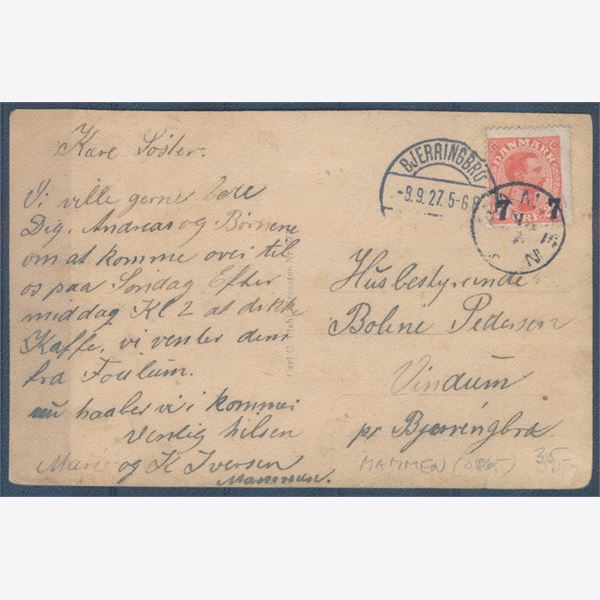 Kære Søster.
Vi ville gerne bede
Dig, Andreas og Børnene
om at komme over til
os paa Søndag Efter
middag Kl 2 at drikke
Kaffe, vi venter dem
fra Foulum.
nu haaber vi i kommer
Venlig hilsen
Marie og K Iversen
Mammen.
BJERRINGBRO
-8.9.27.5-6
DANMARK
7 7
ØRE
Husbestyrende
Bolene Pedersen
Vindum
pr Bjerringbro.
MAMMEN
35-